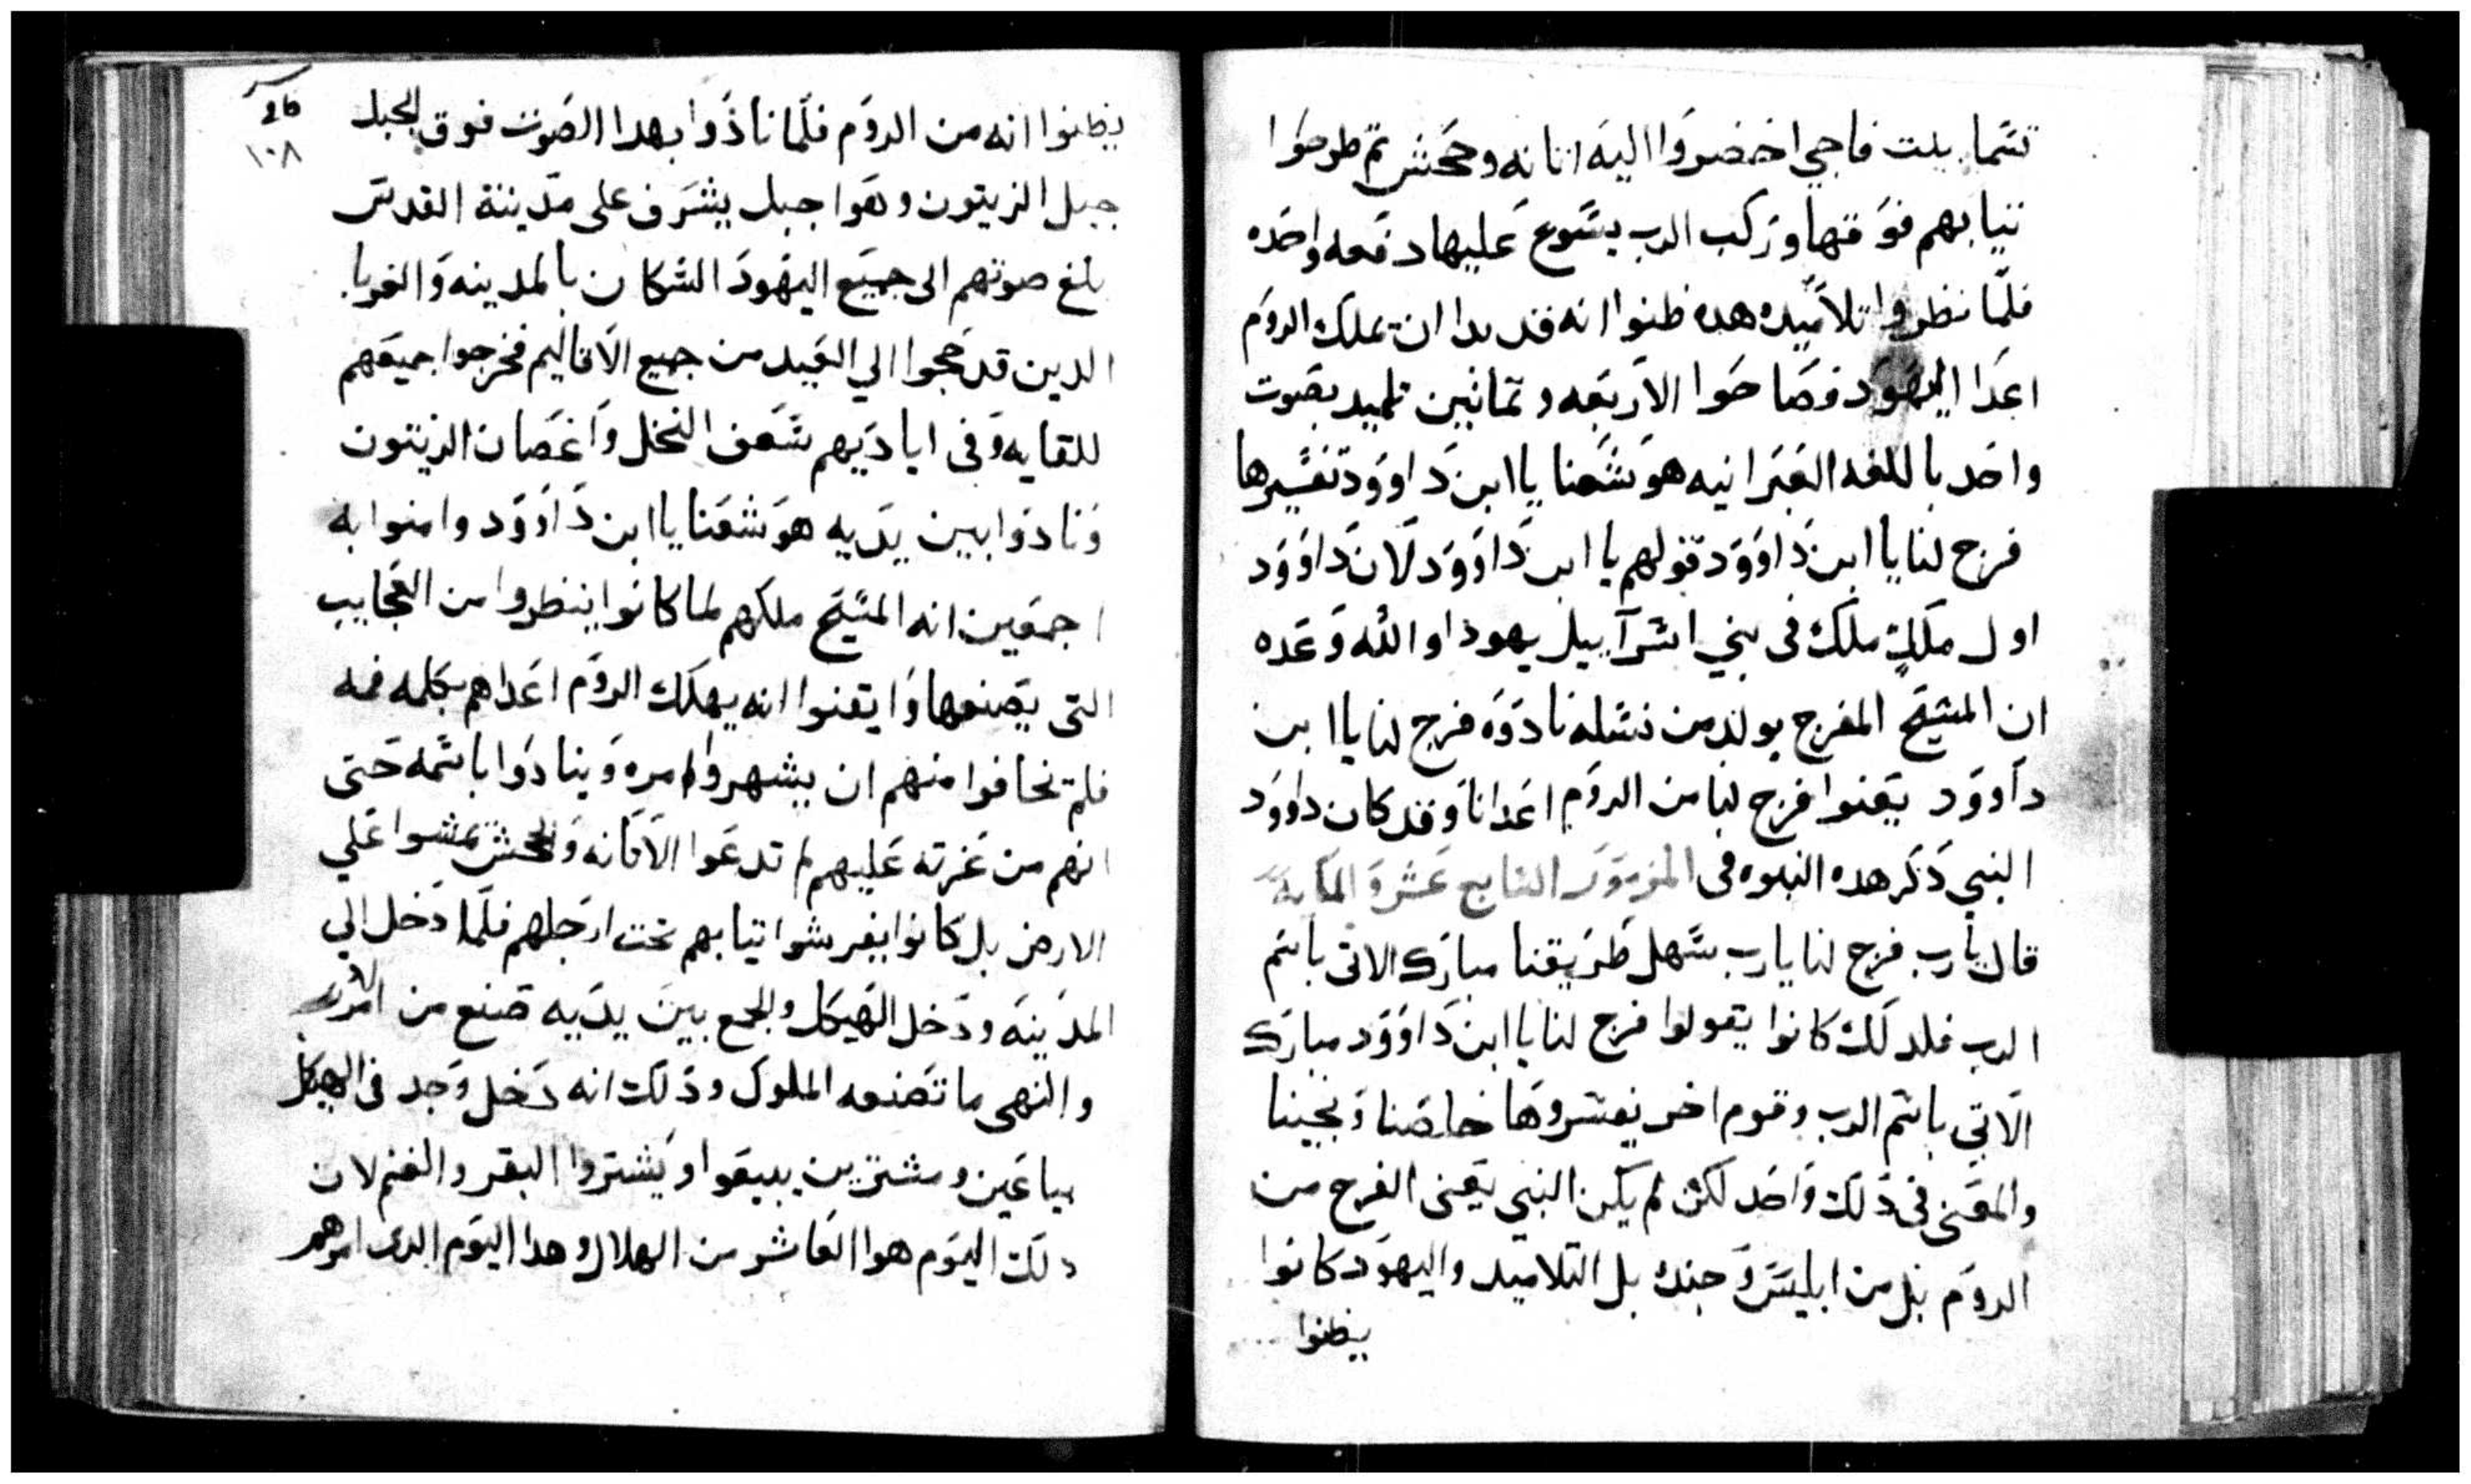 تسما بيت فاجي احضروا اليه اتانه وجحش ثم طرحوا
تيابهم فوقها وركب الرب يسوع عليها دفعه واحده
فلما نظروا تلاميده هده ظنوا انه قد بدا ان يملك الروم
اعدا اليهود فصاحوا الاربعه وتمانين تلميد بصوت
واحد باللغه العبرانيه هوشعنا يا ابن داوود تفسيرها
فرج لنا يا ابن داوود قولهم يا ابن داوود لان داوود
اول ملك ملك فى بني اسراييل يهودا والله وعده
ان المسيح المفرج يولد من نسله نادوه فرج لنا يا ابن
داوود يعنوا فرج لنا من الروم اعدانا وقد كان داوود
النبي دكر هده النبوه فى المزمور السابع عشر والمايه
قال يارب فرج لنا يارب سهل طريقنا مبارك الاتى باسم
الرب فلدلك كانوا يقولوا فرج لنا يا ابن داوود مبارك
الاتي باسم الرب وقوم اخر يفسروها خلصنا ونجينا
والمعنى فى دلك واحد لكن لم يكن النبي يعنى الفرج من
الروم بل من ابليس وجنده بل التلاميد واليهود كانوا
يظنوا
26
١٠٨
يظنوا انه من الروم فلما نادوا بهدا الصوت فوق الجبل
جبل الزيتون وهوا جبل يشرف على مدينة القدس
بلغ صوتهم الى جميع اليهود السكان بالمدينه والغربا
الدين قد حجوا الي العيد من جميع الاقاليم فخرجوا جميعهم
للقايه وفى اياديهم سعف النخل واغصان الزيتون
ونادوا بين يديه هوشعنا يا ابن داوود وامنوا به
اجمعين انه المسيح ملكهم لما كانوا ينظروا من العجايب
التى يصنعها وايقنوا انه يهلك الروم اعداهم بكلمه فمه
فلم تخافوا منهم ان يشهروا امره وينادوا باسمه حتى
انهم من عزته عليهم لم تدعوا الاتانه والجحش تمشوا علي
الارض بل كانوا يفرشوا تيابهم تحت ارجلهم فلما دخل الي
المدينه ودخل الهيكل والجمع بين يديه صنع من الامر
والنهى ما تصنعه الملوك ودلك انه دخل وجد فى الهيكل
بياعين ومشترين يبيعوا ويشتروا البقر والغنم لان
دلك اليوم هوا العاشر من الهلال وهدا اليوم الدى امرهم